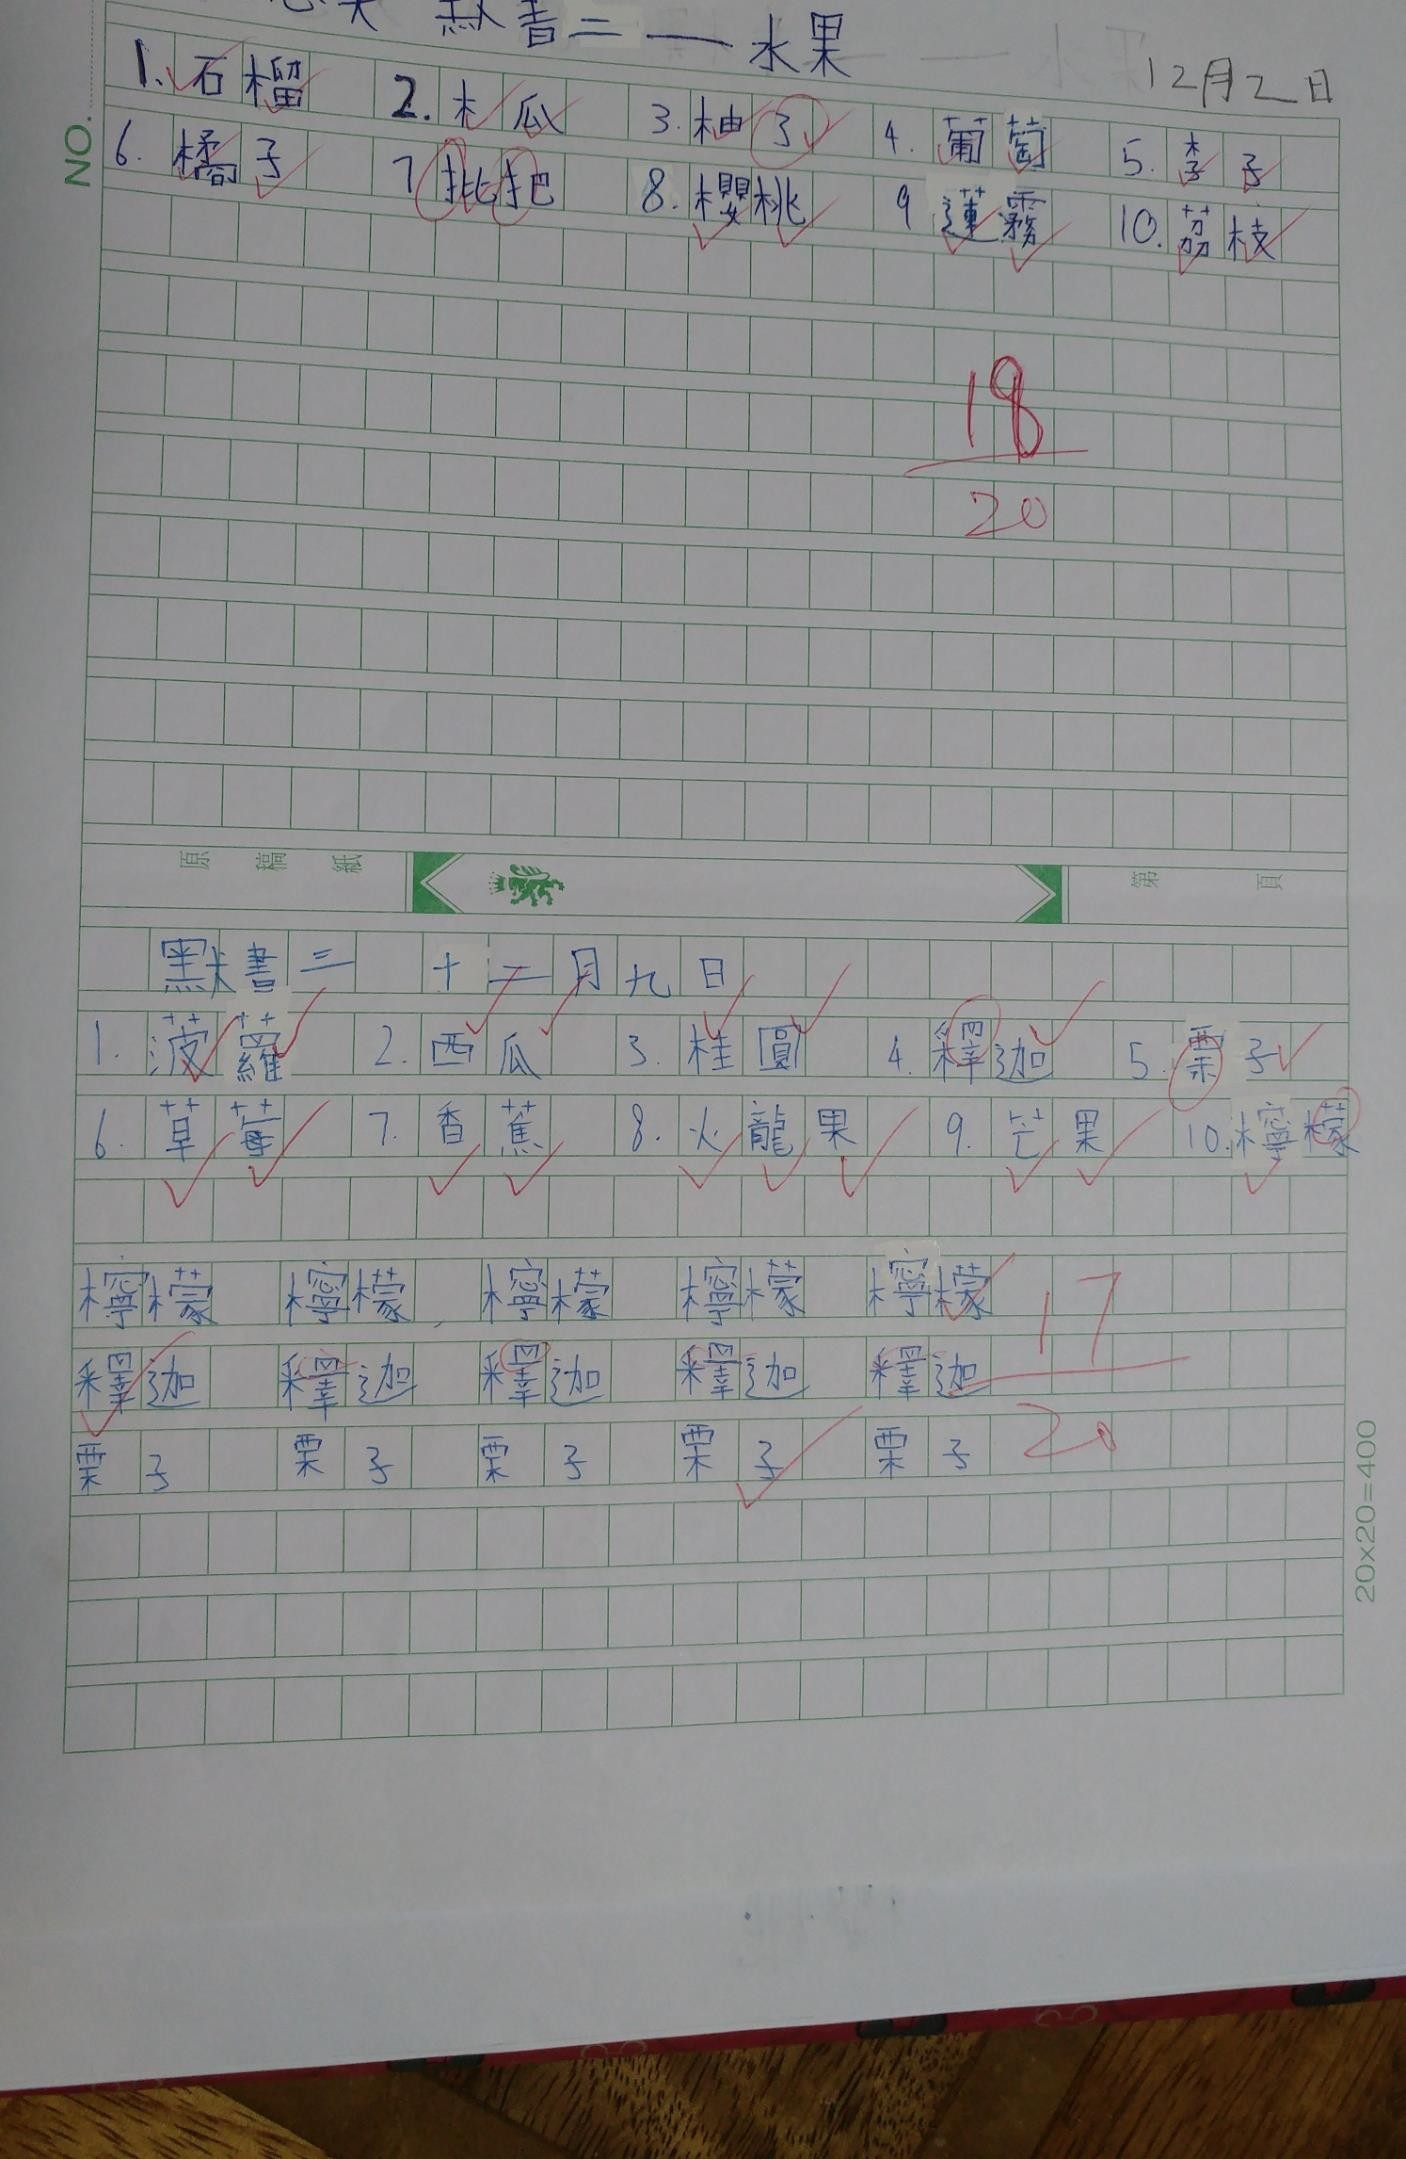 默書二 — 水果
12月2日
NO.
1. 石榴 2. 木瓜 3. 柚子 4. 葡萄 5. 李子
6. 橘子 7 批把 8. 櫻桃 9 蓮霧 10. 荔枝
18
20
原稿紙 第 頁
默書三 十二月九日
1. 菠蘿 2. 西瓜 3. 桂圓 4. 釋迦 5. 栗子
6. 草莓 7. 香蕉 8. 火龍果 9. 芒果 10. 檸檬
檸檬 檸檬 檸檬 檸檬 檸檬
17
釋迦 釋迦 釋迦 釋迦 釋迦
20
栗子 栗子 栗子 栗子 栗子
20×20=400